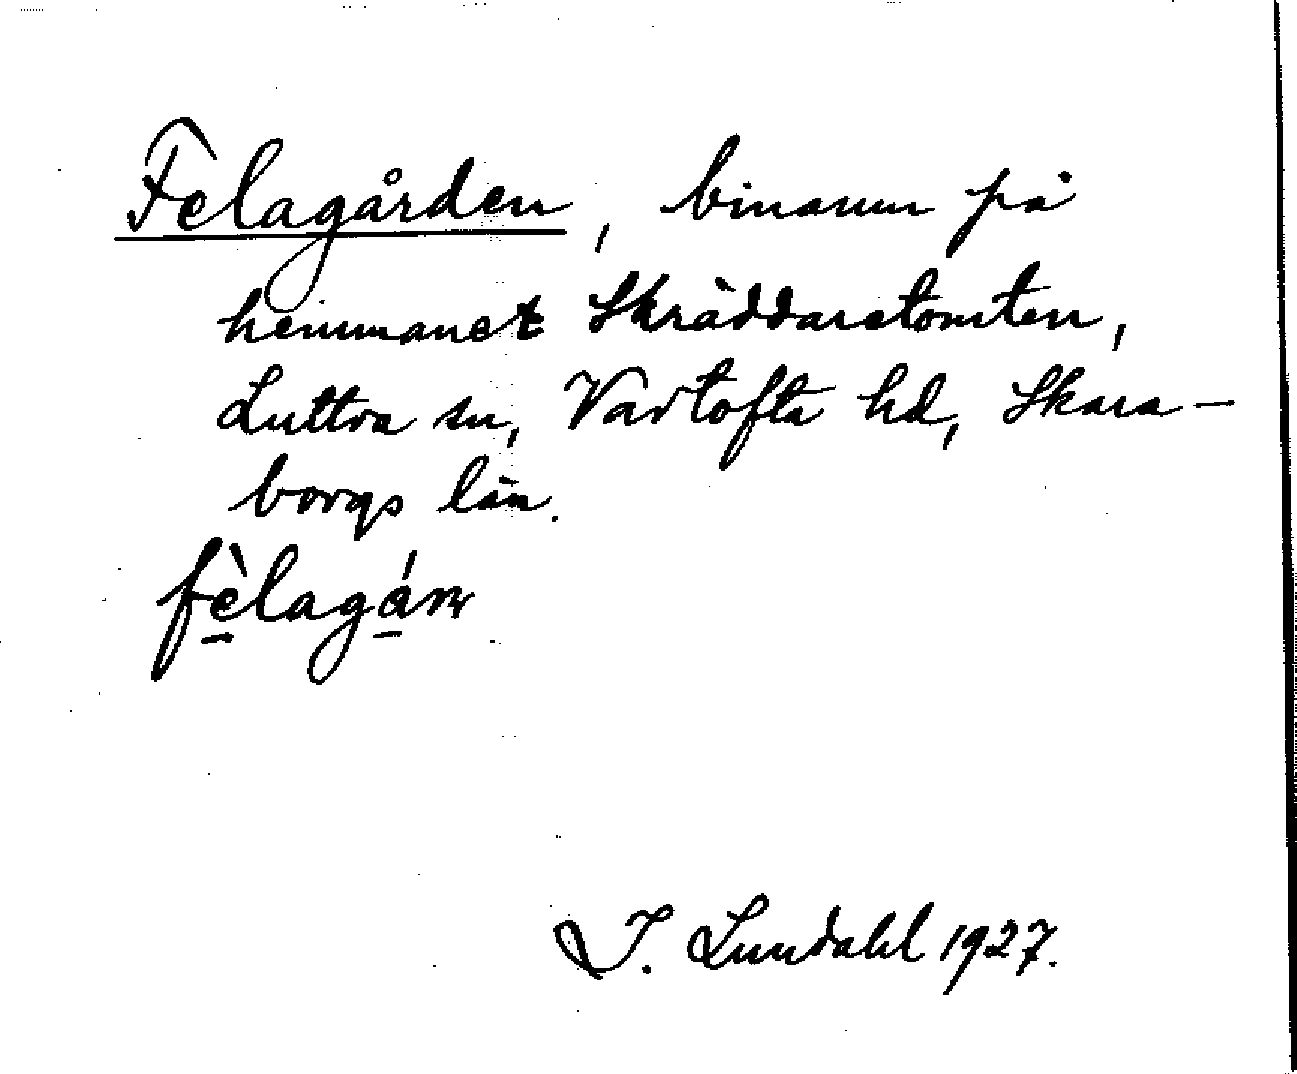 Felagården, binamn på
hemmanet Skräddaretomten,
Luttra sn, Vartofta hd, Skara-
borgs län.
fè̠lagá̠ɳ
I. Lundahl 1927.